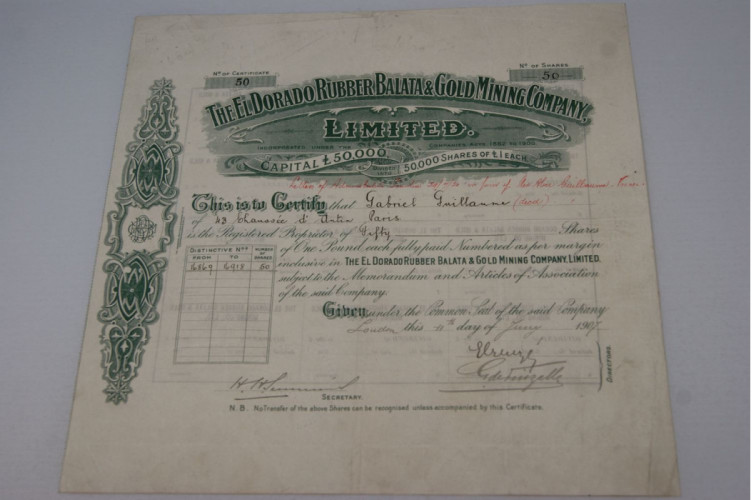 Nº OF CERTIFICATE
50
Nº OF SHARES
50
THE EL DORADO RUBBER BALATA & GOLD MINING COMPANY,
LIMITED.
INCORPORATED UNDER THE COMPANIES ACTS 1862 TO 1900.
CAPITAL £50,000
50,000 SHARES OF £1 EACH
Letters of Administration
This is to Certify that Gabriel Guillaume (Decd)
of 43 Chaussée d'Antin Paris
is the Registered Proprietor of Fifty Shares
of One Pound each fully paid Numbered as per margin
inclusive in THE EL DORADO RUBBER BALATA & GOLD MINING COMPANY, LIMITED.
subject to the Memorandum and Articles of Association
of the said Company.
DISTINCTIVE Nºs
FROM TO
NUMBER OF SHARES
6869 6918 50
Given under the Common Seal of the said Company
London this day of 190
DIRECTORS.
SECRETARY.
N.B. No Transfer of the above Shares can be recognised unless accompanied by this Certificate.